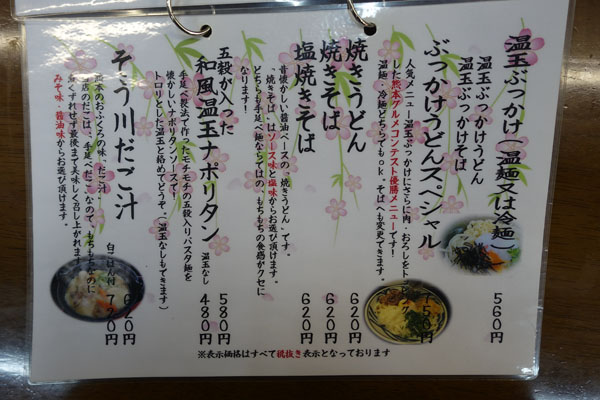 温玉ぶっかけ(温麺又は冷麺)
温玉ぶっかけうどん
温玉ぶっかけそば
560円
ぶっかけうどんスペシャル
人気メニュー温玉ぶっかけにさらに肉・おろしをトッピング
した熊本グルメコンテスト優勝メニューです!
温麺・冷麺どちらでもok。そばへも変更できます。
750円
焼きうどん
620円
焼きそば
620円
塩焼きそば
620円
昔懐かしい醤油ベースの『焼きうどん』です。
『焼きそば』はソース味と塩味からお選び頂けます。
どちらも手延べ麺ならではの、もちもちの食感がクセに
なります!
五穀が入った
和風温玉ナポリタン
580円
温玉なし
480円
手延べ製法で作ったモチモチの五穀入りパスタ麺を
懐かしいナポリタンソースで
トロリとした温玉と絡めてどうぞ。(温玉なしもできます)
そう川だご汁
620円
白ごはん付
720円
熊本のおふくろの味、だご汁。
当店のだごは、手延べだご なので、もちもちなのに
煮くずれせず最後まで美味しく召し上がれます。
みそ味・醤油味からお選び頂けます。
※表示価格はすべて税抜き表示となっております